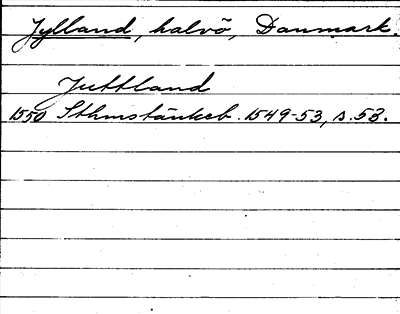 Jylland, halvö, Danmark.
Juttland
1550 Sthmstänkeb. 1549-53, s. 53.